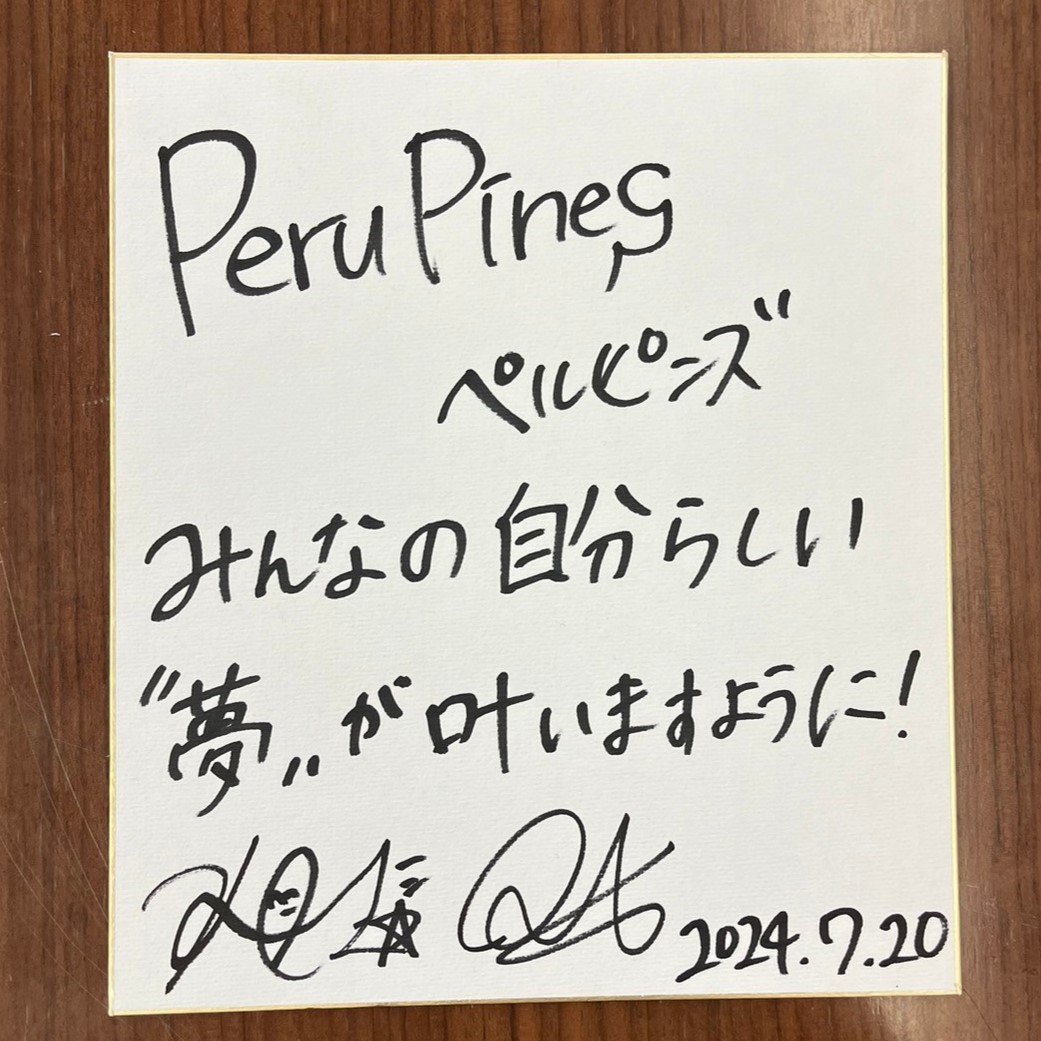 Peru Pines
ペルピンズ
みんなの自分らしい
"夢"が叶いますように!
2024.7.20